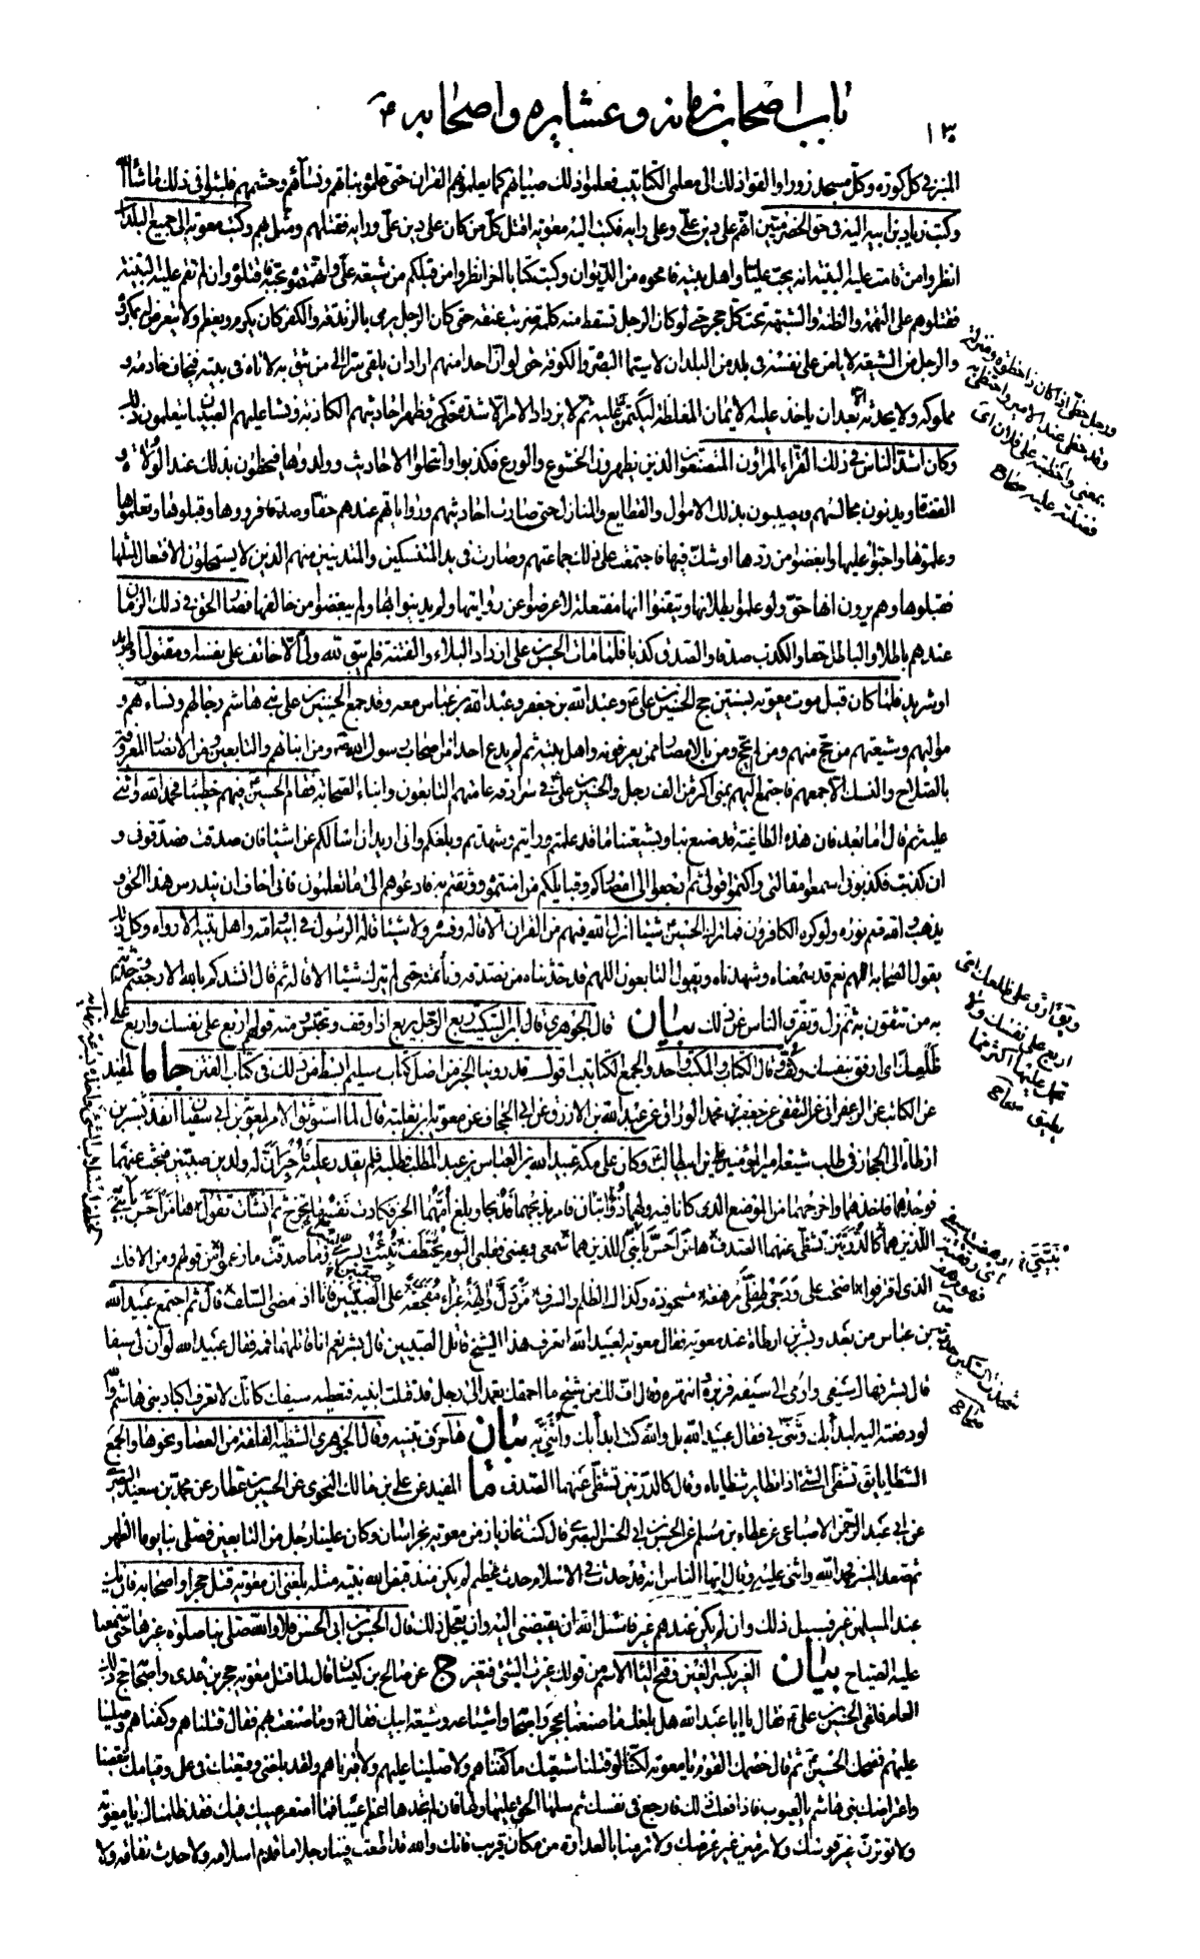 باب اصحاب زمانه و عشايره واصحابه
١٣٠
المنبر في كل كورة وكل مسجد زورا والقوا ذلك الى معلمى الكتاتيب فعلموا ذلك صبيانهم كما يعلمونهم القران حتى علموه بناتهم ونساءهم وحشمهم فلبثوا في ذلك ما شاء الله
وكتب زياد بن ابيه اليه في حق الحضرميين انهم على دين علي وعلى رايه فكتب اليه معوية اقتل كل من كان على دين علي ورايه فقتلهم ومثل بهم وكتب معوية الى جميع البلدان
انظروا من قامت عليه البينة انه يحب عليا واهل بيته فامحوه من الديوان وكتب كتابا اخر انظروا من قبلكم من شيعة علي واتهمتموه بحبه فاقتلوه وان لم تقم عليه البينة
فقتلوهم على التهمة والظنة والشبهة تحت كل حجر حتى لو كان الرجل تسقط منه كلمة ضربت عنقه حتى كان الرجل يرمى بالزندقة والكفر كان يكرم ويعظم ولا يتعرض له بمكروه
والرجل من الشيعة لا يامن على نفسه في بلد من البلدان لا سيما البصرة والكوفة حتى لو ان احدا منهم اراد ان يلقى سرا الى من يثق به لاتاه في بيته فيخاف خادمه و
مملوكه ولا يحدثه الا بعد ان ياخذ عليه الايمان المغلظة ليكتمن عليه ثم لا يزداد الامر الا شدة حتى كثر وظهر احاديثهم الكاذبة ونشا عليهم الصبيان يتعلمون ذلك
وكان اشد الناس في ذلك القراء المراؤن المتصنعون الذين يظهرون الخشوع والورع فكذبوا وانتحلوا الاحاديث وولدوها فيحظون بذلك عند الولاة و
القضاة ويدنون مجالسهم ويصيبون بذلك الاموال والقطايع والمنازل حتى صارت احاديثهم ورواياتهم عندهم حقا وصدقا فرووها وقبلوها وتعلموها
وعلموها واحبوا عليها وابغضوا من ردها او شك فيها فاجتمعت على ذلك جماعتهم وصارت في يد المتنسكين والمتدينين منهم الذين لا يستحلون الافتعال لمثلها
فقبلوها وهم يرون انها حق ولو علموا بطلانها وتيقنوا انها مفتعلة لاعرضوا عن روايتها ولم يدينوا بها ولم يبغضوا من خالفها فصار الحق في ذلك الزمان
عندهم باطلا والباطل حقا والكذب صدقا والصدق كذبا فلما مات الحسن بن علي ازداد البلاء والفتنة فلم يبق لله ولي الا خائف على نفسه او مقتول او طريد
او شريد فلما كان قبل موت معوية بسنتين حج الحسين بن علي وعبد الله بن جعفر وعبد الله بن عباس معه وقد جمع الحسين بن علي بني هاشم رجالهم ونساءهم و
مواليهم وشيعتهم من حج منهم ومن لم يحج ومن بالامصار ممن يعرفونه واهل بيته ثم لم يدع احدا من اصحاب رسول الله ومن ابنائهم والتابعين ومن الانصار المعروفين
بالصلاح والنسك الا جمعهم فاجتمع اليهم بمنى اكثر من الف رجل والحسين بن علي في سرادقه عامتهم التابعون وابناء الصحابة فقام الحسين فيهم خطيبا فحمد الله واثنى
عليه ثم قال اما بعد فان هذه الطاغية قد صنع بنا وبشيعتنا ما قد علمتم ورايتم وشهدتم وبلغكم واني اريد ان اسالكم عن اشياء فان صدقت فصدقوني و
ان كذبت فكذبوني اسمعوا مقالتي واكتموا قولي ثم ارجعوا الى امصاركم وقبايلكم من امنتموه ووثقتم به فادعوهم الى ما تعلمون فاني اخاف ان يندرس هذا الحق و
يذهب والله متم نوره ولو كره الكافرون فما ترك الحسين شيئا انزل الله فيهم من القران الا قاله وفسره ولا شيئا قاله الرسول في ابيه وامه واهل بيته الا رواه وكل ذلك
يقول الصحابة اللهم نعم قد سمعناه وشهدناه ويقول التابعون اللهم قد حدثناه من نصدقه وناتمنه حتى لم يترك شيئا الا قاله ثم قال انشدكم بالله الا رجعتم وحدثتم
به من تثقون به ثم نزل وتفرق الناس عن ذلك بيان قال الجوهري قال ابن السكيت ربع الرجل يربع اذا وقف وتحبس ومنه قولهم اربع على نفسك واربع على
ظلعك اى ارفق بنفسك وكف وقال الكتاب والمكتب واحد والجمع الكتاتيب اقول قد روينا الخبر من اصل كتاب سليم ابسط من ذلك في كتاب الفتن جا ما المفيد
عن الكاتب عن الزعفراني عن الثقفي عن جعفر بن محمد الوراق عن عبد الله بن الازرق عن ابي الجحاف عن معوية بن ثعلبة قال لما استوثق الامر لمعوية بن ابي سفيان انفذ بسر بن
ارطاة الى الحجاز في طلب شيعة امير المؤمنين علي بن ابي طالب وكان على مكة عبيد الله بن العباس بن عبد المطلب فطلبه فلم يقدر عليه فاخبر ان له ولدين صبيين فبحث عنهما
فوجدهما فاخذهما واخرجهما من الموضع الذى كانا فيه ولهما ذؤابتان فامر بذبحهما فذبحا وبلغ امهما الخبر فكادت نفسها تخرج ثم انشات تقول ها من احس بابني
اللذين هما كالدرتين تشظى عنهما الصدف ها من احس بابني اللذين هما سمعي وعيني فقلبي اليوم مختطف نبئت بسرا وما صدقت ما زعموا من قولهم ومن الافك
الذى اقترفوا اضحت على ودجى طفلي مرهفة مشحوذة وكذاك الظلم والسرف من دل والهة عبراء مفجعة على صبيين فاتا اذ مضى السلف قال ثم اجتمع عبيد الله
بن عباس من بعد وبسر بن ارطاة عند معوية فقال معوية لعبيد الله اتعرف هذا الشيخ قاتل الصبيين قال بسر نعم انا قاتلهما فمه فقال عبيد الله لو ان لي سيفا
قال بسر فهاك سيفي واومى الى سيفه فزبره معوية انتهره وقال اف لك من شيخ ما احمقك تعمد الى رجل قد قتلت ابنيه فتعطيه سيفك كانك لا تعرف اكباد بنى هاشم والله
لو دفعته اليه لبدا بك وثنى بي فقال عبيد الله بل والله كنت ابدا بك واثني به بيان ها حرف تنبيه وقال الجوهري الشظية الفلقة من العصا ونحوها والجمع
الشظايا يق تشظى الشئ اذا تطاير شظاياه وقال كالدرتين تشظى عنهما الصدف ما المفيد عن علي بن مالك النحوي عن الحسين بن عطار عن محمد بن سعيد البصري
عن ابي عبد الرحمن الاصباعي عن عطاء بن مسلم عن الحسن بن ابي الحسن البصري قال كنت غازيا زمن معوية بخراسان وكان علينا رجل من التابعين فصلى بنا يوما الظهر
ثم صعد المنبر فحمد الله واثنى عليه وقال ايها الناس انه قد حدث في الاسلام حدث عظيم لم يكن منذ قبض الله نبيه مثله بلغني ان معوية قتل حجرا واصحابه فان يك
عند المسلمين غير فسبيل ذلك وان لم يكن عندهم غير فاسئل الله ان يقبضنى اليه وان يعجل ذلك قال الحسن بن ابي الحسن فلا والله ما صلى بنا صلوة غيرها حتى سمعنا
عليه الصياح بيان الغير بكسر الغين وفتح الياء الاسم من قولك غيرت الشئ فتغير ج عن صالح بن كيسان قال لما قتل معوية حجر بن عدى واصحابه حج ذلك
العام فلقى الحسين بن علي فقال يا ابا عبد الله هل بلغك ما صنعنا بحجر واصحابه واشياعه وشيعة ابيك فقال وما صنعت بهم فقال قتلناهم وكفناهم وصلينا
عليهم فضحك الحسين ثم قال خصمك القوم يا معوية لكننا لو قتلنا شيعتك ما كفناهم ولا صلينا عليهم ولا قبرناهم ولقد بلغنى وقيعتك في علي وقيامك بنقصنا
واعتراضك بنى هاشم بالعيوب فاذا فعلت ذلك فارجع في نفسك ثم سلها الحق عليها ولها فان لم تجدها اعظم عيبا فما اصغر عيبك فيك فقد ظلمناك يا معوية
ولا توترن غير قوسك ولا ترمين غير غرضك ولا ترمنا بالعداوة من مكان قريب فانك والله قد اطعت فينا رجلا ما قدم اسلامه ولا حدث نفاقه ولا
ورجل حظى اذا كان ذا حظوة ومنزلة
وقد حظى عند الامير واحتظى به
بمعنى واحظيته على فلان اى
فضلته عليه صحاح
ويق ارق على ظلعك اى
اربع على نفسك ولا
تحمل عليها اكثر مما
يطيق صحاح
شحذت السكين حددته
صحاح